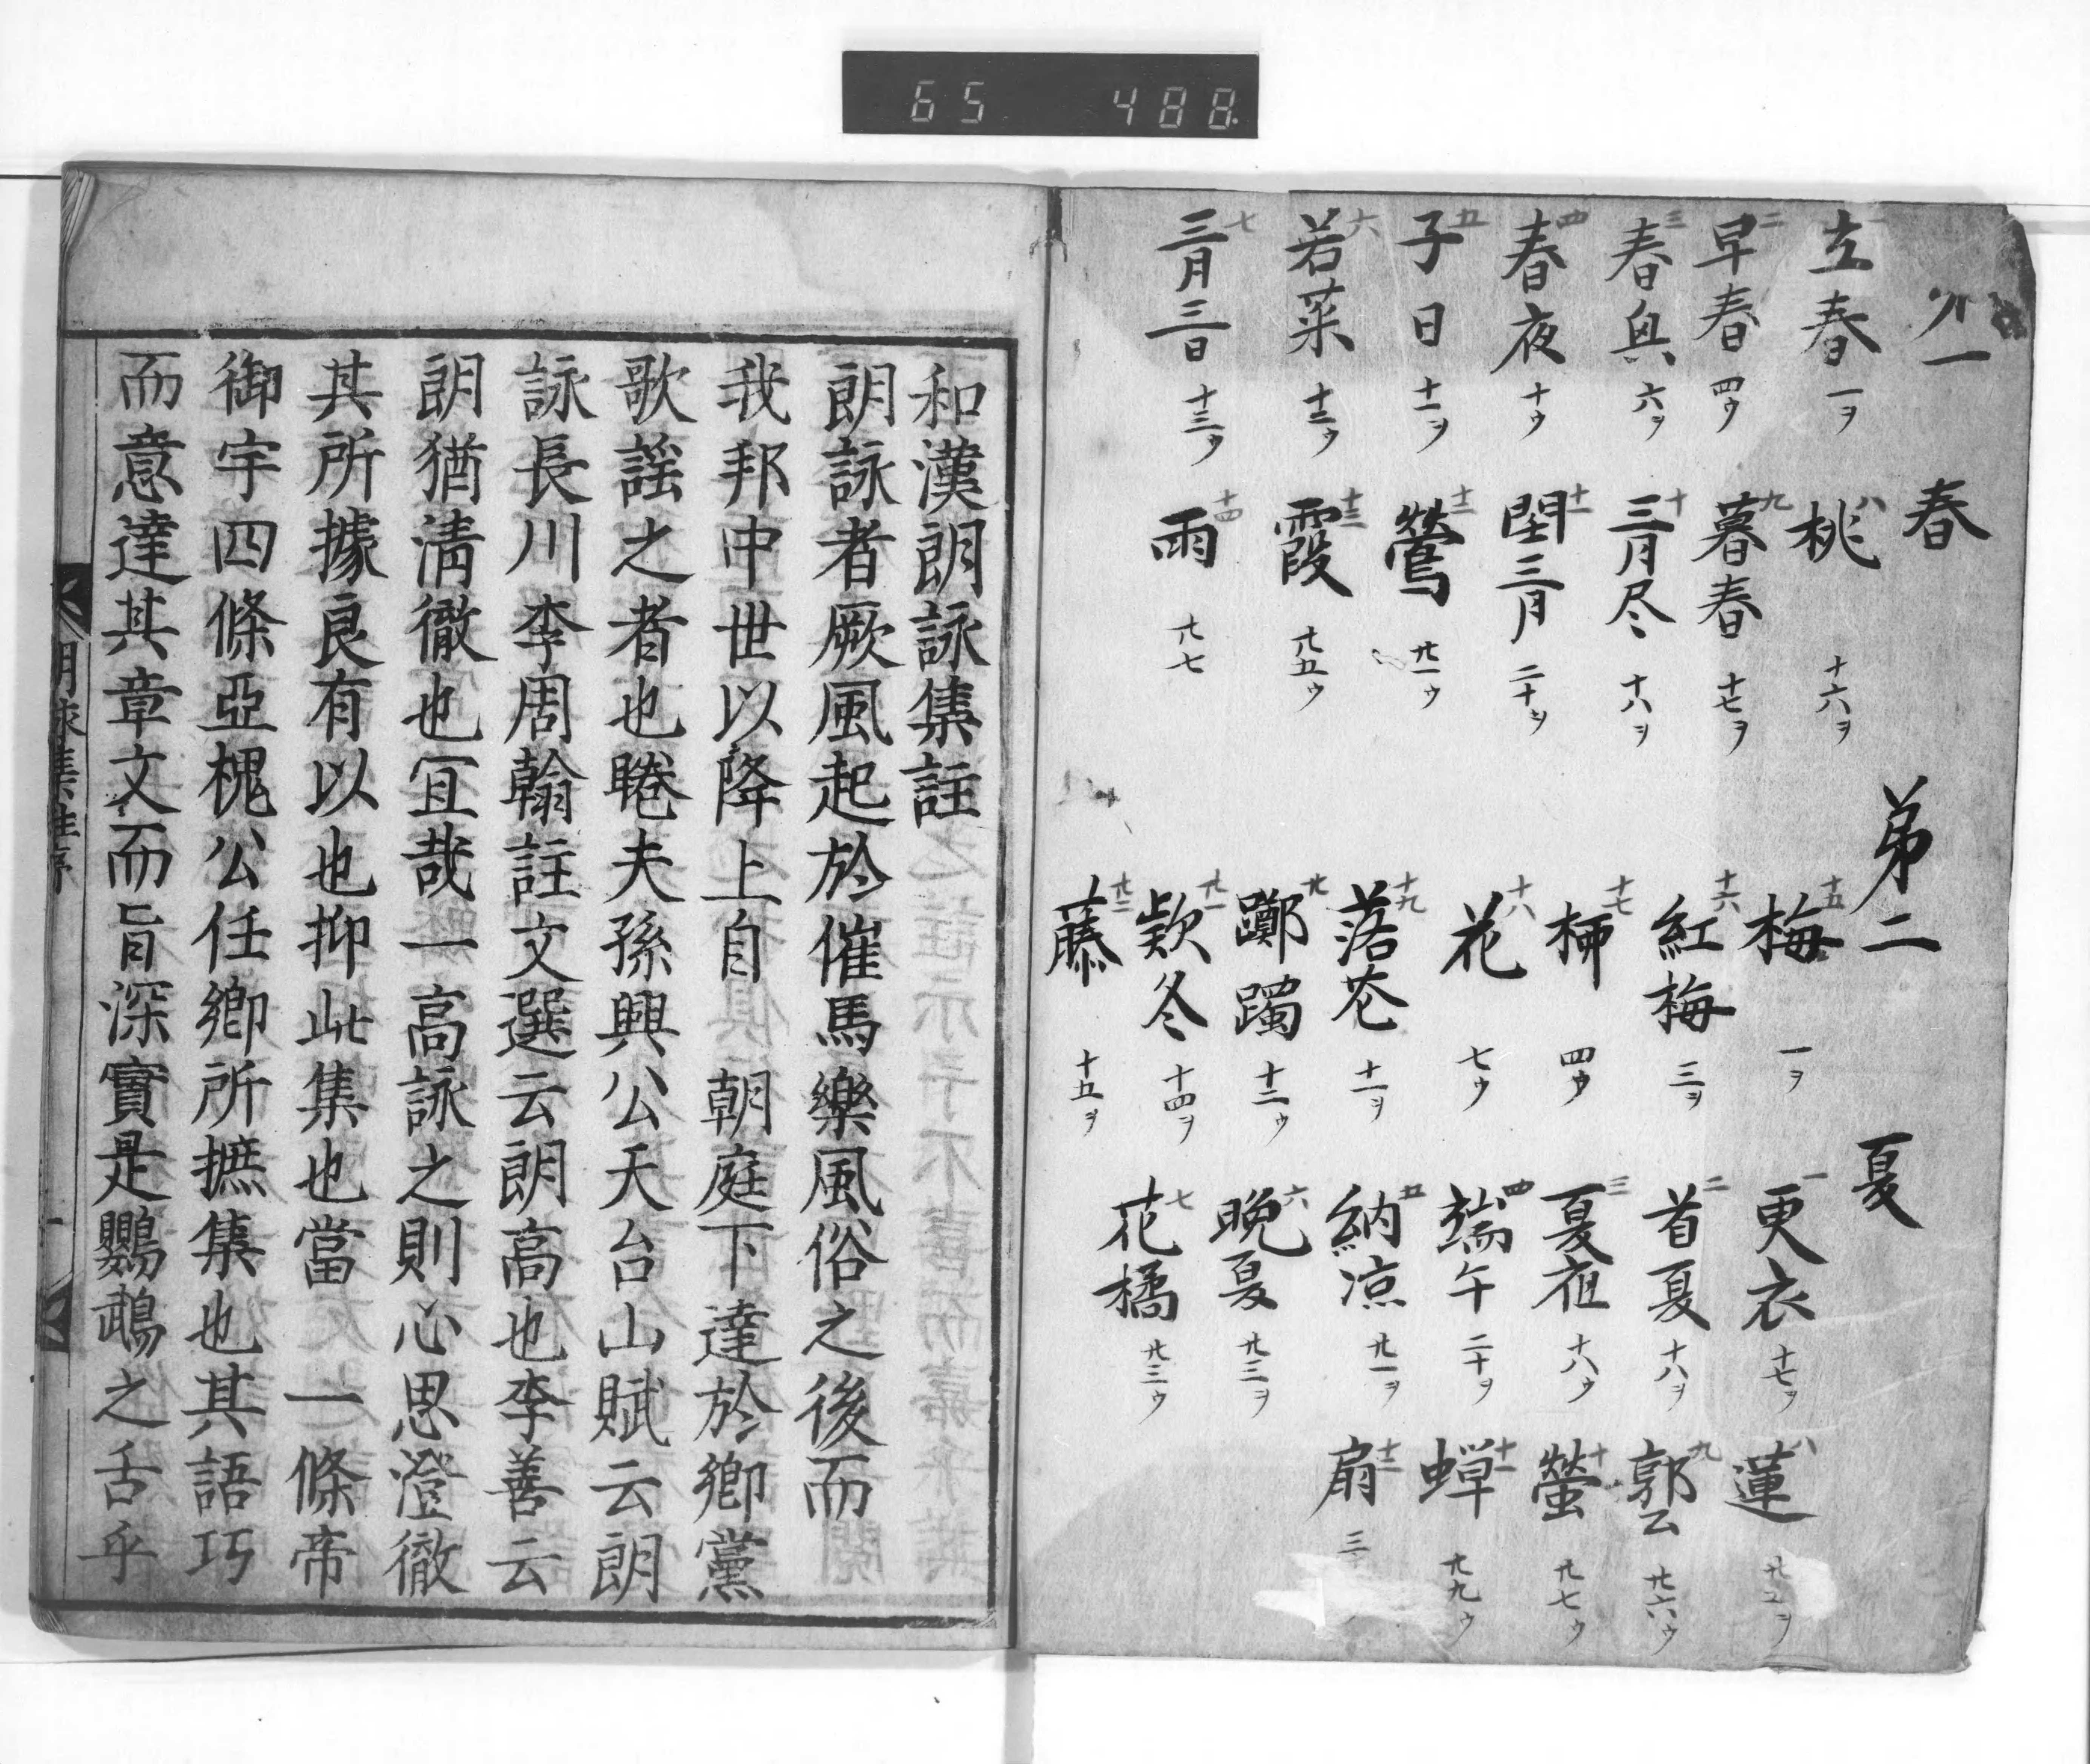 65 488
㐧一 春
一 立春 一ヲ
二 早春 四ウ
三 春興 六ヲ
四 春夜 十ウ
五 子日 十一ヲ
六 若菜 十二ウ
七 三月三日 十三ウ
八 桃 十六ヲ
九 暮春 十七ヲ
十 三月尽 十八ヲ
十一 閏三月 二十ヲ
十二 鶯 廿一ウ
十三 霞 廿五ウ
十四 雨 廿七
弟二
十五 梅 一ヲ
十六 紅梅 三ヲ
十七 柳 四ウ
十八 花 七ウ
十九 落花 十一ヲ
廿 躑躅 十二ウ
廿一 欵冬 十四ヲ
廿二 藤 十五ヲ
夏
一 更衣 十七ヲ
二 首夏 十八ヲ
三 夏夜 十八ウ
四 端午 二十ヲ
五 納凉 廿一ヲ
六 晩夏 廿三ヲ
七 花橘 廿三ウ
八 蓮
九 郭公 廿六ウ
十 螢 廿七ウ
十一 蝉 廿九ウ
十二 扇 三
和漢朗詠集註
朗詠者厥風起於催馬樂風俗之後而
我邦中世以降上自 朝庭下達於鄉黨
歌謡之者也睠夫孫興公天台山賦云朗
詠長川李周翰註文選云朗高也李善云
朗猶清徹也冝哉一高詠之則心思澄徹
其所據良有以也抑此集也當 一條帝
御宇四條亞槐公任鄉所摭集也其語巧
而意達其章文而旨深實是鸚鵡之舌乎
朗詠集註序 一